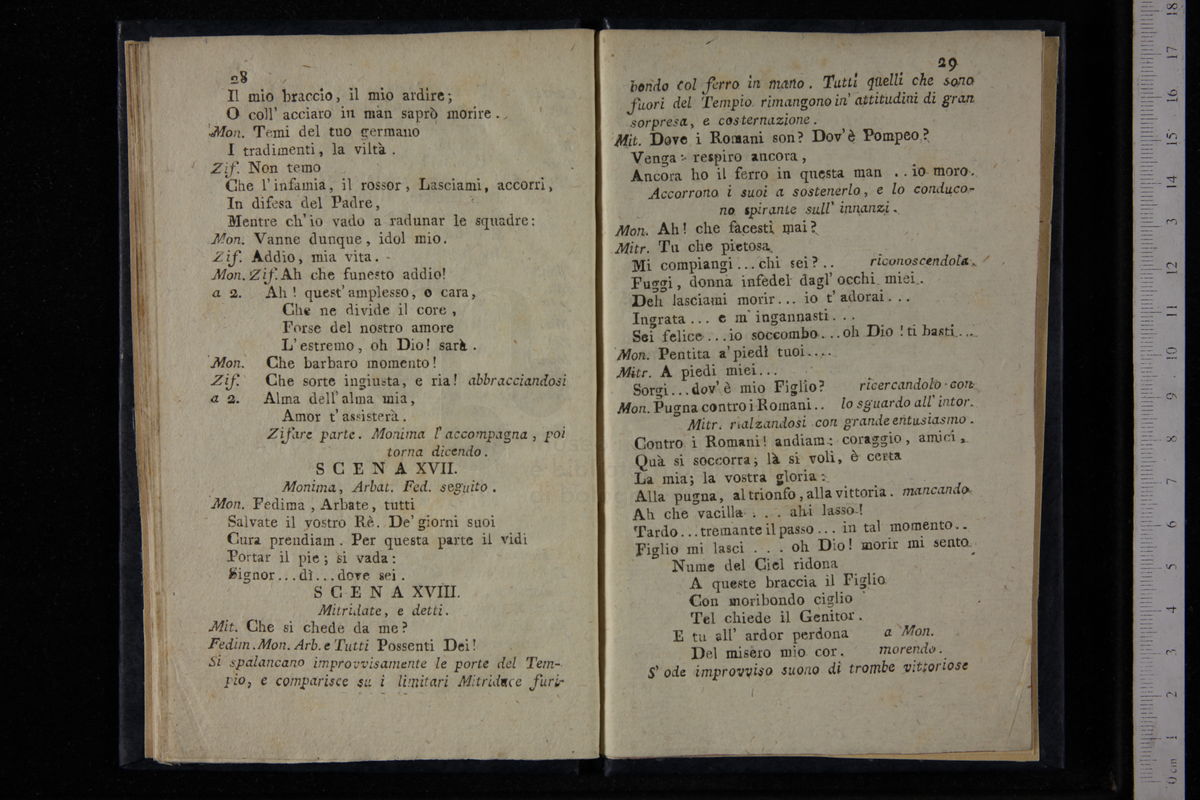 28
Il mio braccio, il mio ardire;
O coll' acciaro in man saprò morire.
Mon. Temi del tuo germano
I tradimenti, la viltà.
Zif. Non temo
Che l'infamia, il rossor, Lasciami, accorri,
In difesa del Padre,
Mentre ch'io vado a radunar le squadre:
Mon. Vanne dunque, idol mio.
Zif. Addio, mia vita.
Mon. Zif. Ah che funesto addio!
a 2. Ah! quest' amplesso, o cara,
Che ne divide il core,
Forse del nostro amore
L'estremo, oh Dio! sarà.
Mon. Che barbaro momento!
Zif. Che sorte ingiusta, e ria! abbracciandosi
a 2. Alma dell' alma mia,
Amor t'assisterà.
Zifare parte. Monima l'accompagna, poi
torna dicendo.
SCENA XVII.
Monima, Arbat. Fed. seguito.
Mon. Fedima, Arbate, tutti
Salvate il vostro Rè. De' giorni suoi
Cura prendiam. Per questa parte il vidi
Portar il pie; si vada:
Signor...dì...dove sei.
SCENA XVIII.
Mitridate, e detti.
Mit. Che si chede da me?
Fedim. Mon. Arb. e Tutti Possenti Dei!
Si spalancano improvvisamente le porte del Tem-
pio, e comparisce su i limitari Mitridace furi-
29
bondo col ferro in mano. Tutti quelli che sono
fuori del Tempio rimangono in' attitudini di gran
sorpresa, e costernazione.
Mit. Dove i Romani son? Dov'è Pompeo?
Venga: respiro ancora,
Ancora ho il ferro in questa man . . io moro.
Accorrono i suoi a sostenerlo, e lo conduco-
no spirante sull' innanzi.
Mon. Ah! che facesti mai?
Mitr. Tu che pietosa
Mi compiangi...chi sei? .. riconoscendola.
Fuggi, donna infedel dagl' occhi miei.
Deh lasciami morir... io t'adorai...
Ingrata ... e m'ingannasti...
Sei felice...io soccombo...oh Dio! ti basti...
Mon. Pentita a' piedi tuoi....
Mitr. A piedi miei...
Sorgi...dov'è mio Figlio? ricercandolo con
Mon. Pugna contro i Romani.. lo sguardo all' intor.
Mitr. rialzandosi con grande entusiasmo.
Contro i Romani! andiam: coraggio, amici,
Quà si soccorra; là si voli, è certa
La mia; la vostra gloria:
Alla pugna, al trionfo, alla vittoria. mancando
Ah che vacilla . . . ahi lasso!
Tardo...tremante il passo... in tal momento..
Figlio mi lasci . . . oh Dio! morir mi sento.
Nume del Ciel ridona
A queste braccia il Figlio
Con moribondo ciglio
Tel chiede il Genitor.
E tu all' ardor perdona a Mon.
Del misero mio cor. morendo.
S'ode improvviso suono di trombe vittoriose
0 cm 1 2 3 4 5 6 7 8 9 10 11 12 13 14 15 16 17 18